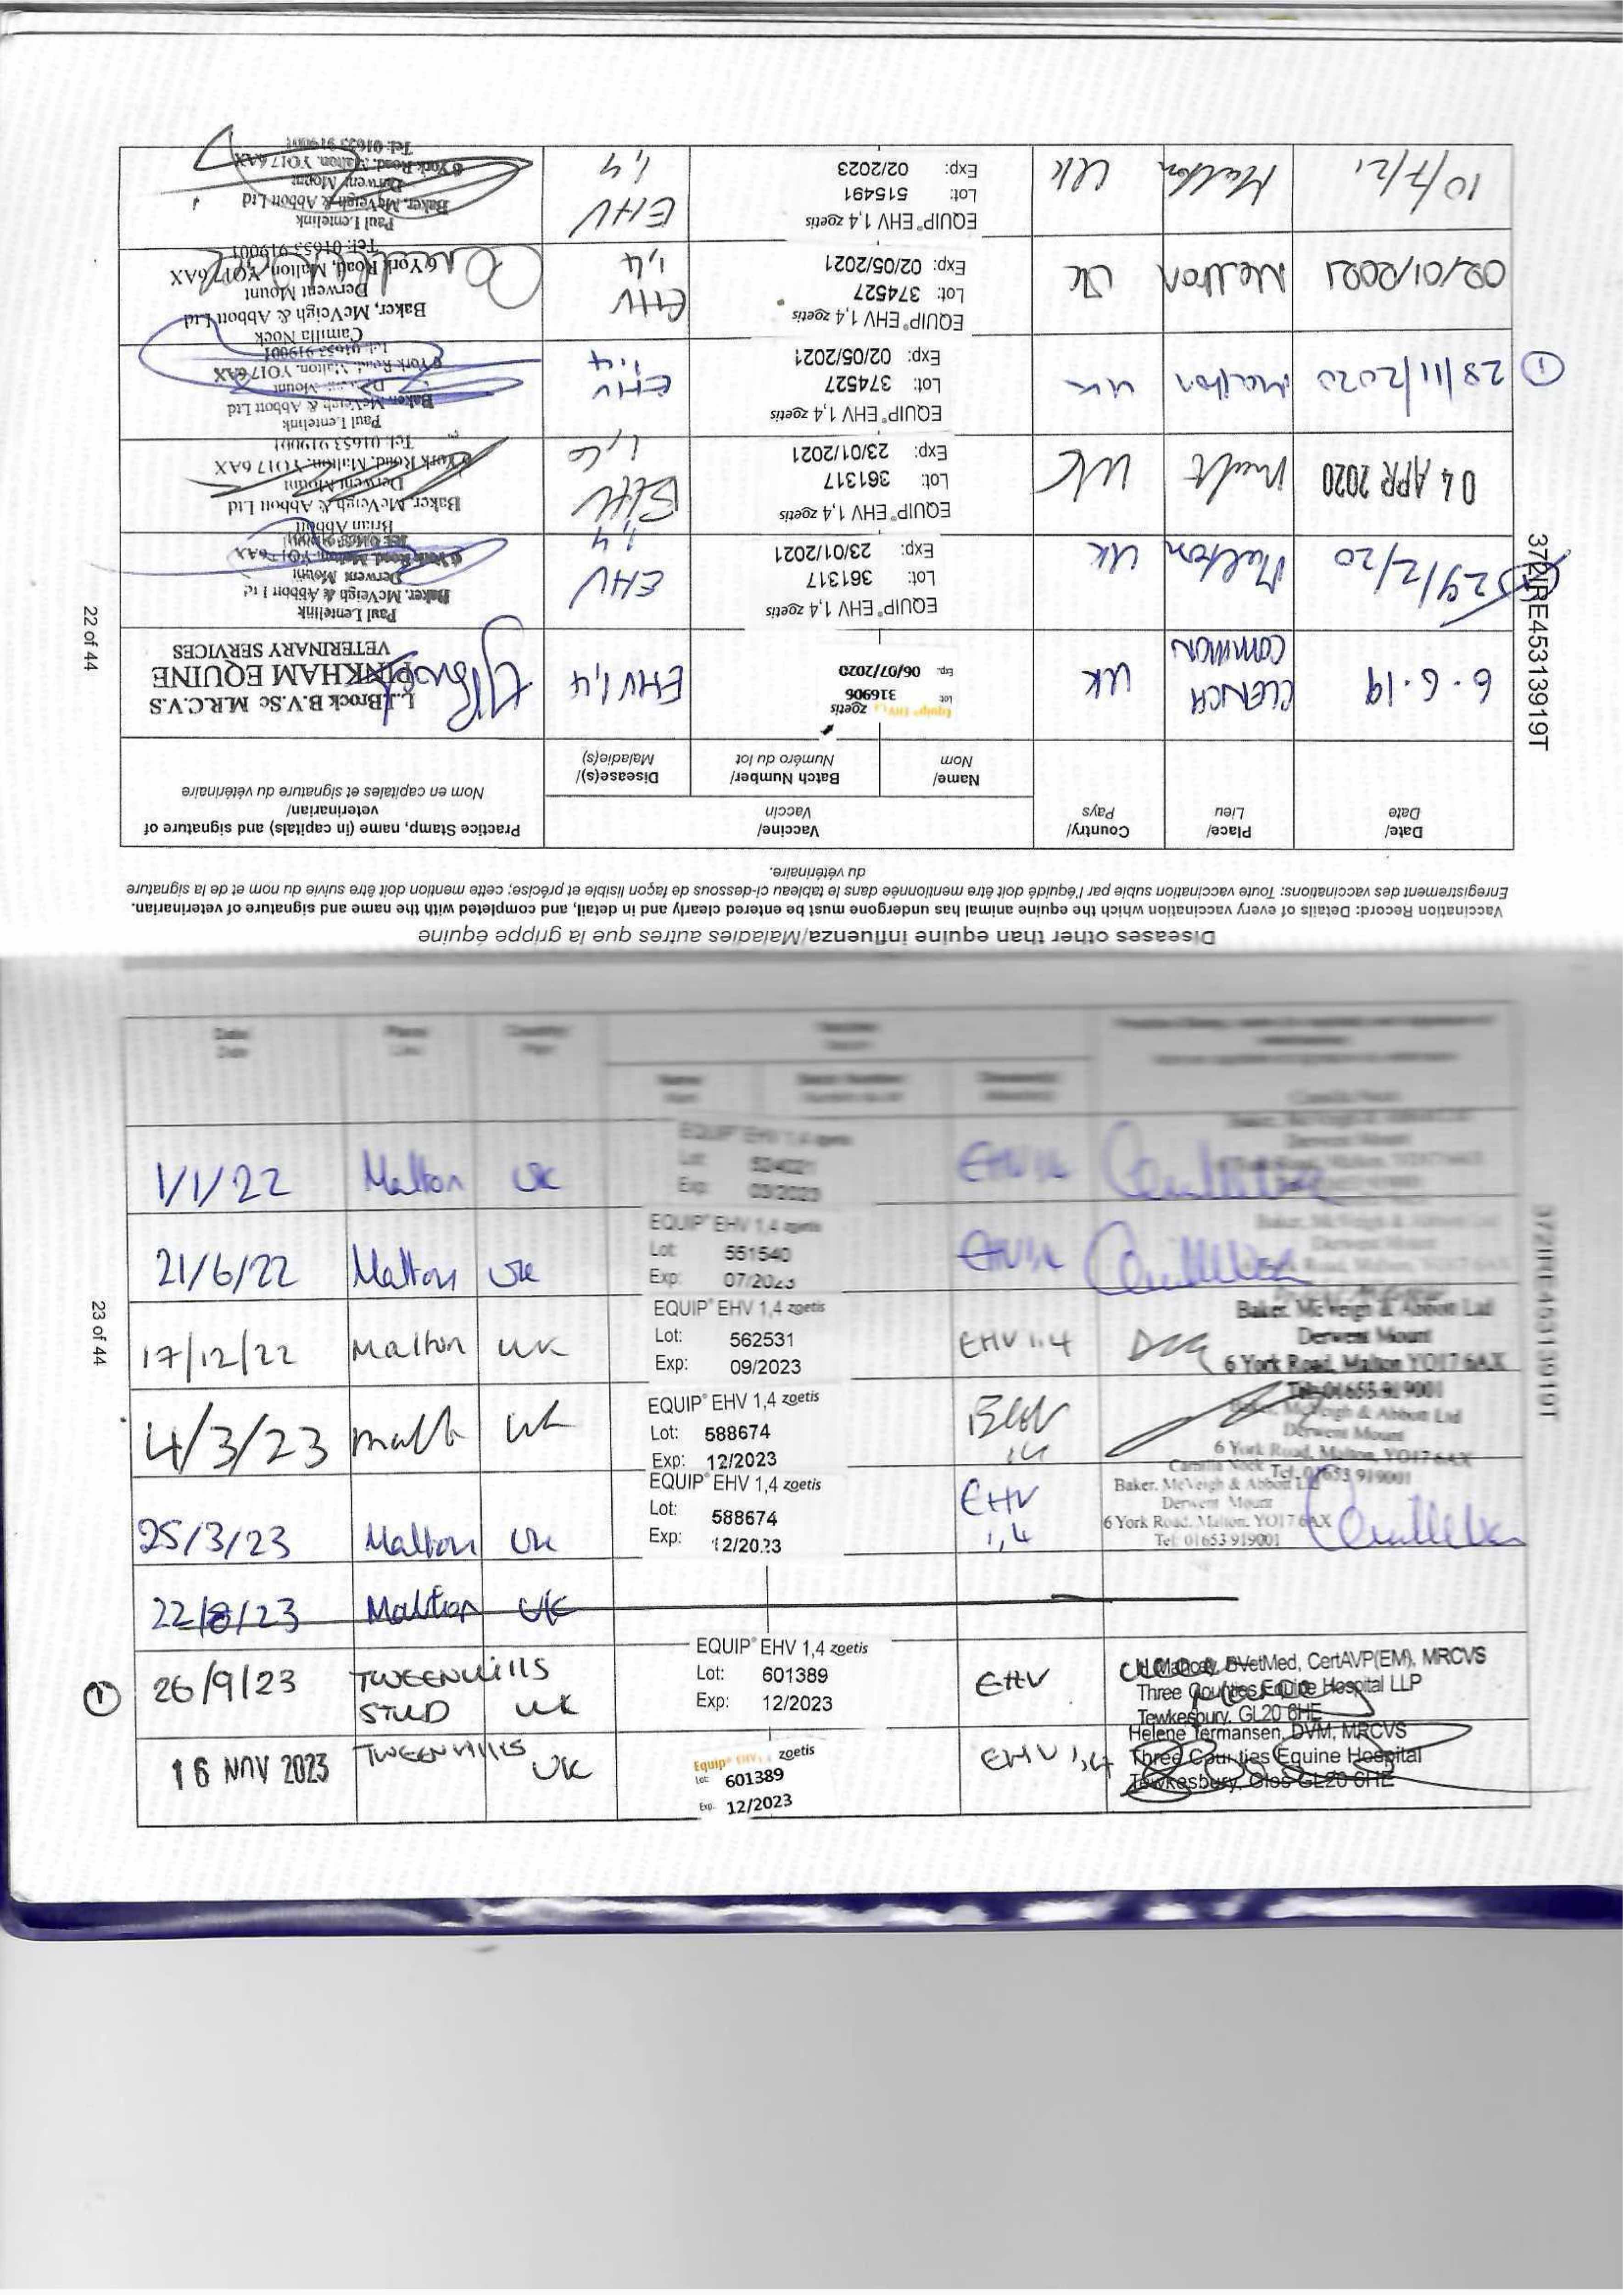 Diseases other than equine influenza/Maladies autres que la grippe équine
Vaccination Record: Details of every vaccination which the equine animal has undergone must be entered clearly and in detail, and completed with the name and signature of veterinarian.
Enregistrement des vaccinations: Toute vaccination subie par l'équidé doit être mentionnée dans le tableau ci-dessous de façon lisible et précise; cette mention doit être suivie du nom et de la signature
du vétérinaire.
Date/
Date
Place/
Lieu
Country/
Pays
Vaccine/
Vaccin
Name/
Nom
Batch Number/
Numéro du lot
Disease(s)/
Maladie(s)
Practice Stamp, name (in capitals) and signature of
veterinarian/
Nom en capitales et signature du vétérinaire
6.6.19
CLENCH
COMMON
UK
Equip EHV zoetis
Lot 316906
Exp 06/07/2020
EHV1,4
L.J.Brock B.V.Sc M.R.C.V.S
PINKHAM EQUINE
VETERINARY SERVICES
29/2/20
Malton
UK
EQUIP® EHV 1,4 zoetis
Lot: 361317
Exp: 23/01/2021
EHV
1,4
Paul Lentelink
Baker, McVeigh & Abbott Ltd
Derwent Mount
6 York Road, Malton, YO17 6AX
04 APR 2020
Malt
UK
EQUIP® EHV 1,4 zoetis
Lot: 361317
Exp: 23/01/2021
EHV
Brian Abbott
Baker, McVeigh & Abbott Ltd
Derwent Mount
6 York Road, Malton, YO17 6AX
Tel: 01653 919001
① 28/11/2020
Malton
UK
EQUIP® EHV 1,4 zoetis
Lot: 374527
Exp: 02/05/2021
EHV
1,4
Paul Lentelink
Baker, McVeigh & Abbott Ltd
Derwent Mount
6 York Road, Malton, YO17 6AX
Tel: 01653 919001
02/01/2021
Malton
UK
EQUIP® EHV 1,4 zoetis
Lot: 374527
Exp: 02/05/2021
EHV
1,4
Camilla Nock
Baker, McVeigh & Abbott Ltd
Derwent Mount
6 York Road, Malton, YO17 6AX
Tel: 01653 919001
10/7/21
Malton
UK
EQUIP® EHV 1,4 zoetis
Lot: 515491
Exp: 02/2023
EHV
1,4
Paul Lentelink
Baker, McVeigh & Abbott Ltd
Derwent Mount
6 York Road, Malton, YO17 6AX
Tel: 01653 919001
372IRE45313919T
22 of 44
1/1/22
Malton
UK
EQUIP® EHV 1,4 zoetis
Lot:
Exp: 03/2023
EHV 1,4
Derwent Mount
21/6/22
Malton
UK
EQUIP® EHV 1,4 zoetis
Lot: 551540
Exp: 07/2023
EHV 1,4
Baker, McVeigh & Abbott Ltd
Derwent Mount
17/12/22
Malton
UK
EQUIP® EHV 1,4 zoetis
Lot: 562531
Exp: 09/2023
EHV 1.4
Baker, McVeigh & Abbott Ltd
Derwent Mount
6 York Road, Malton YO17 6AX
Tel: 01653 919001
4/3/23
Malt
UK
EQUIP® EHV 1,4 zoetis
Lot: 588674
Exp: 12/2023
Baker, McVeigh & Abbott Ltd
Derwent Mount
6 York Road, Malton, YO17 6AX
Tel: 01653 919001
25/3/23
Malton
UK
EQUIP® EHV 1,4 zoetis
Lot: 588674
Exp: 12/2023
EHV
1,4
Camilla Nock
Baker, McVeigh & Abbott Ltd
Derwent Mount
6 York Road, Malton, YO17 6AX
Tel: 01653 919001
22/8/23
Malton
UK
① 26/9/23
TWEENHILLS
STUD
UK
EQUIP® EHV 1,4 zoetis
Lot: 601389
Exp: 12/2023
EHV
BVetMed, CertAVP(EM), MRCVS
Three Counties Equine Hospital LLP
Tewkesbury, GL20 6HE
16 NOV 2023
TWEENHILLS
UK
Equip EHV zoetis
Lot: 601389
Exp. 12/2023
EHV 1,4
Helene Termansen, DVM, MRCVS
Three Counties Equine Hospital
Tewkesbury, Glos GL20 6HE
372IRE45313919T
23 of 44